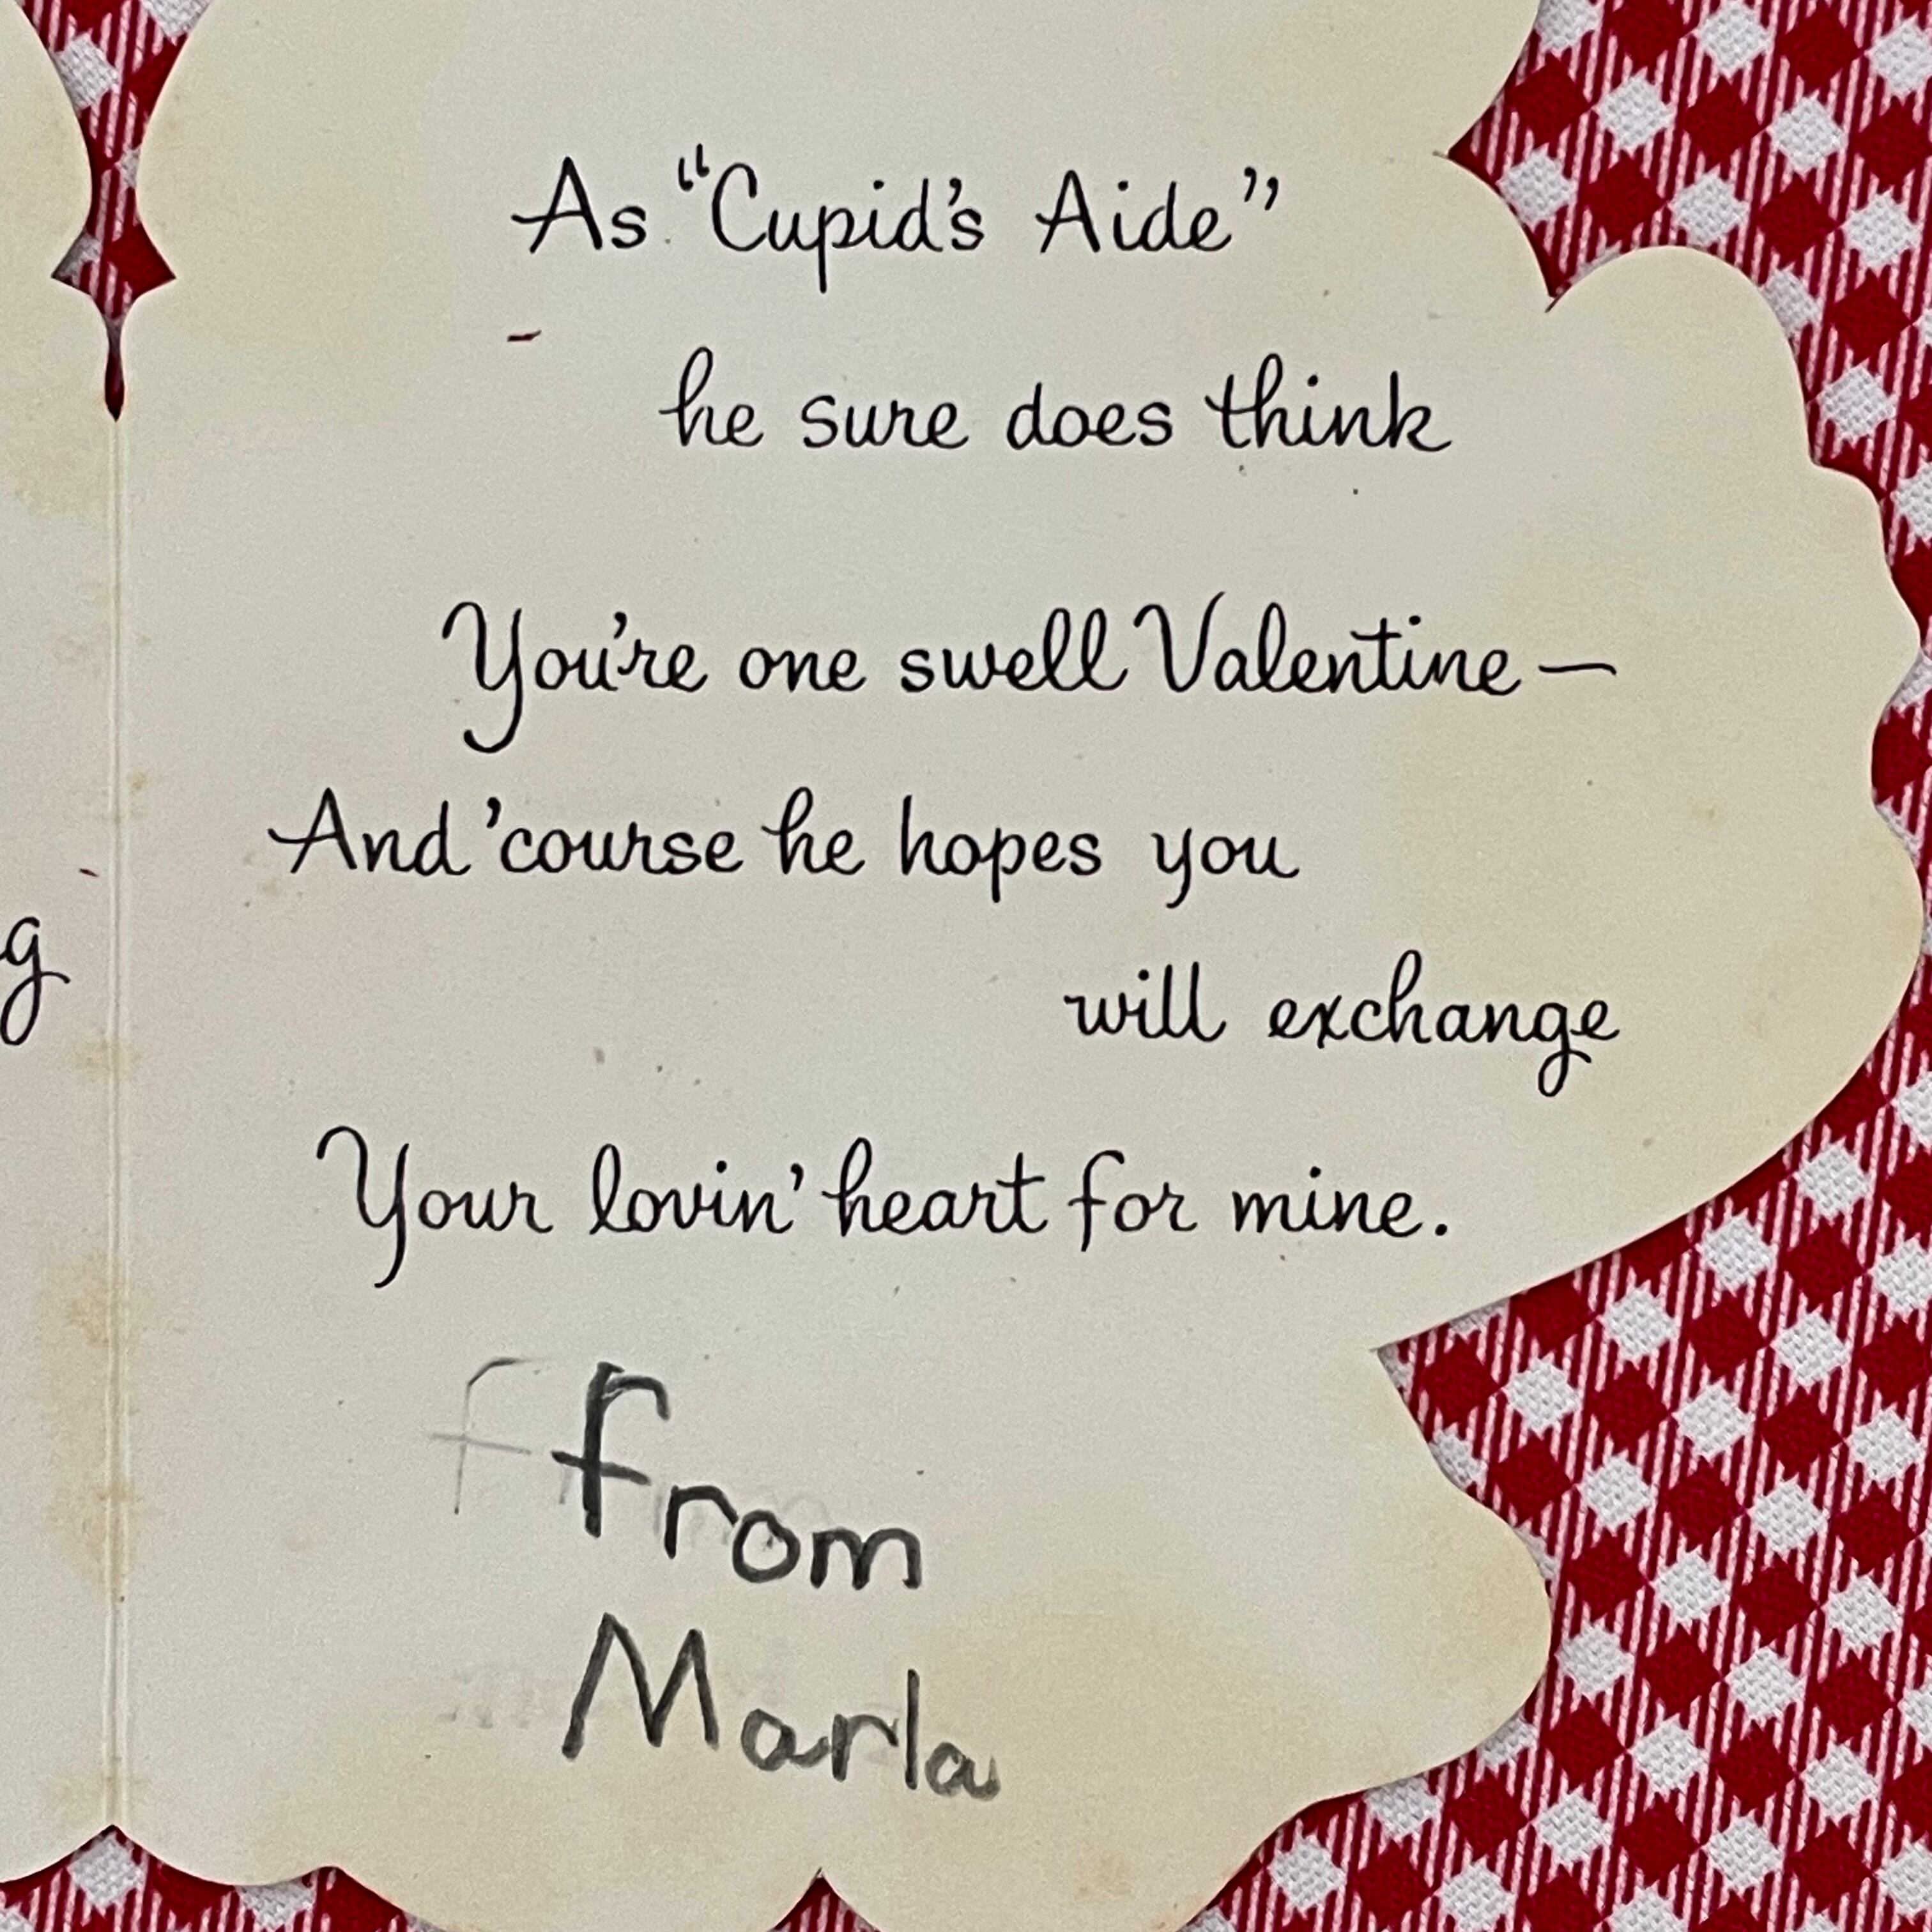 As "Cupid's Aide"
he sure does think
You're one swell Valentine—
And 'course he hopes you
will exchange
Your lovin' heart for mine.
g
f from
Marla